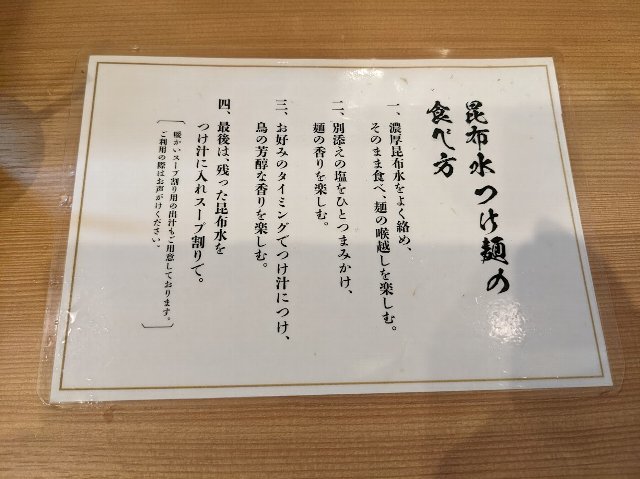 昆布水つけ麺の
食べ方
一、濃厚昆布水をよく絡め、
そのまま食べ、麺の喉越しを楽しむ。
二、別添えの塩をひとつまみかけ、
麺の香りを楽しむ。
三、お好みのタイミングでつけ汁につけ、
鳥の芳醇な香りを楽しむ。
四、最後は、残った昆布水を
つけ汁に入れスープ割りで。
暖かいスープ割り用の出汁もご用意しております。
ご利用の際はお声がけください。